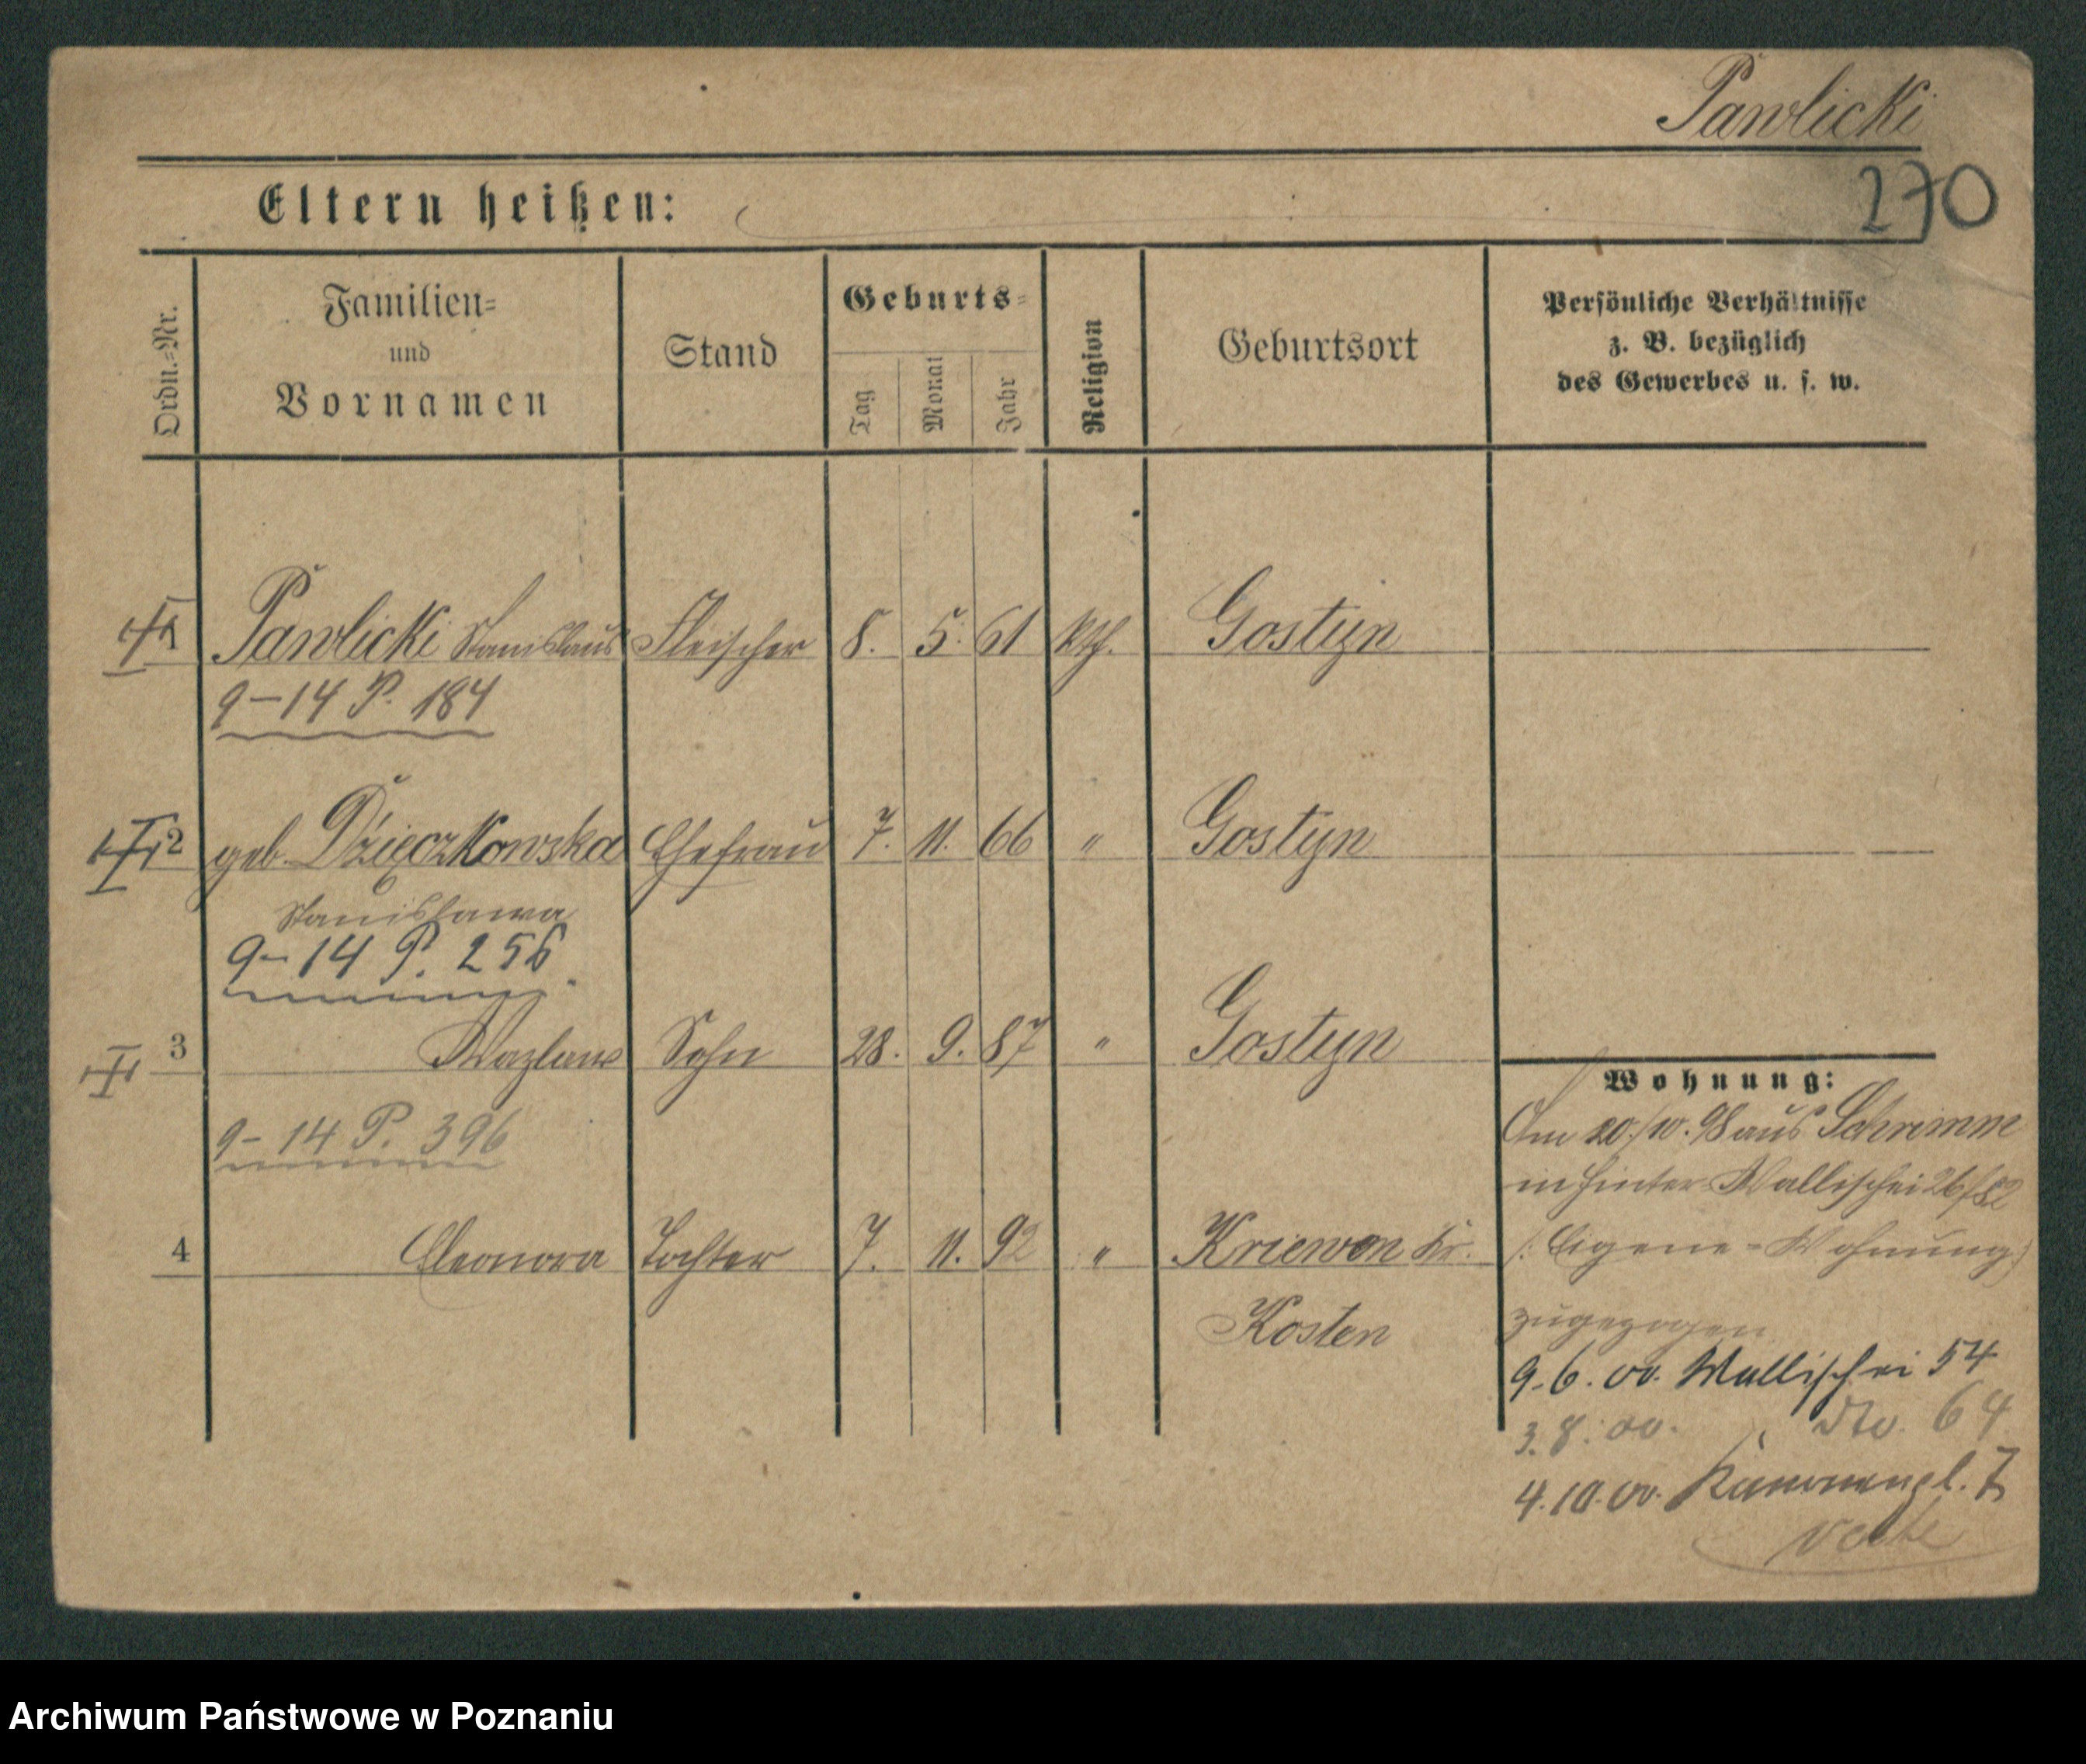 Pawlicki
270
Eltern heißen:
Ordn.=Nr.
Familien=
und
Vornamen
Stand
Geburts=
Tag
Monat
Jahr
Religion
Geburtsort
Persönliche Verhältnisse
z. B. bezüglich
des Gewerbes u. s. w.
1 Pawlicki Stanislaus Fleischer 8. 5. 61 kth. Gostyn
9-14 P. 184
2 geb. Dzięczkowska Ehefrau 7. 11. 66 " Gostyn
Stanislawa
9-14 P. 256
3 Wazlaus Sohn 28. 9. 87 " Gostyn
9-14 P. 396
4 Eleonora Tochter 7. 11. 92 " Kriewen Kr.
Kosten
Wohnung:
Am 20./10. 98 aus Schrimm
in Hinter Wallischei 26/
(: Eigene-Wohnung)
zugezogen
9.6.00. Wallischei 54
3.8.00. dto. 64
4.10.00. 7
verte
Archiwum Państwowe w Poznaniu